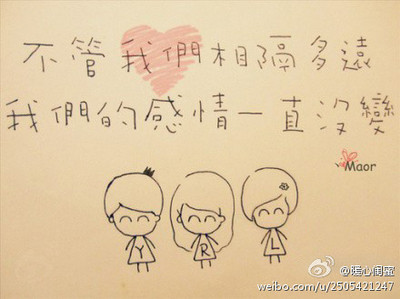 不管我們相隔多遠
我們的感情一直沒變
Maor
Y R L
@暖心闺蜜
weibo.com/u/2505421247